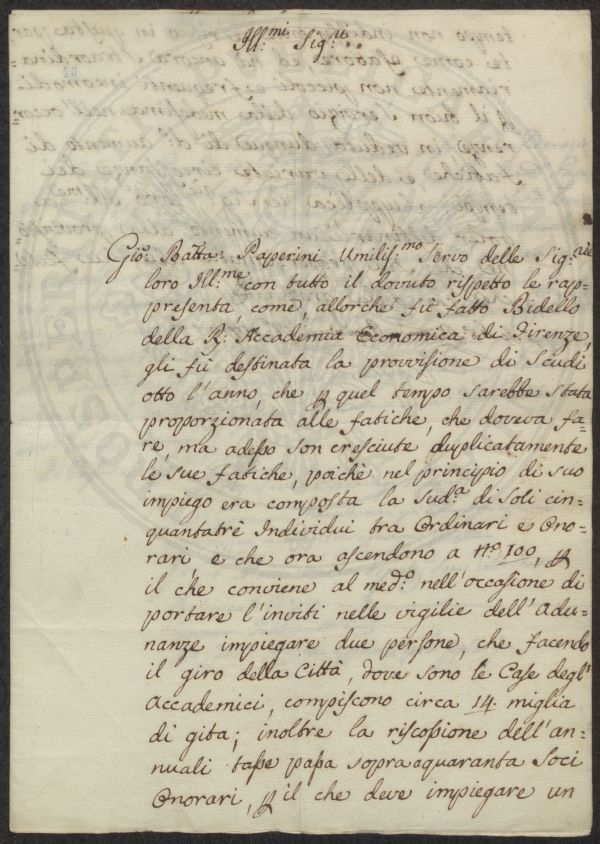 Ill:mi Sig:ri
Gio: Batta: Paperini Umilis:mo Servo delle Sig:rie
loro Ill:me con tutto il dovuto rispetto le rap=
presenta, come, allorche fù fatto Bidello
della R: Accademia Economica di Firenze,
gli fù destinata la provvisione di Scudi
otto l'anno, che p quel tempo sarebbe stata
proporzionata alle fatiche, che doveva fa=
re, ma adesso son cresciute duplicatamente
le sue fatiche, poichè nel principio di suo
impiego era composta la sud:a di soli cin=
quantatrè Individui tra Ordinari e Ono=
rari, e che ora ascendono a N:o 100, p
il che conviene al med:o nell'occasione di
portare l'inviti nelle vigilie dell'Adu=
nanze impiegare due persone, che facendo
il giro della Città, dove sono le Case degl'
Accademici, compiscono circa 14. miglia
di gita; inoltre la riscossione dell'an=
nuali tasse passa sopra a quaranta Soci
Onorari, p il che deve impiegare un